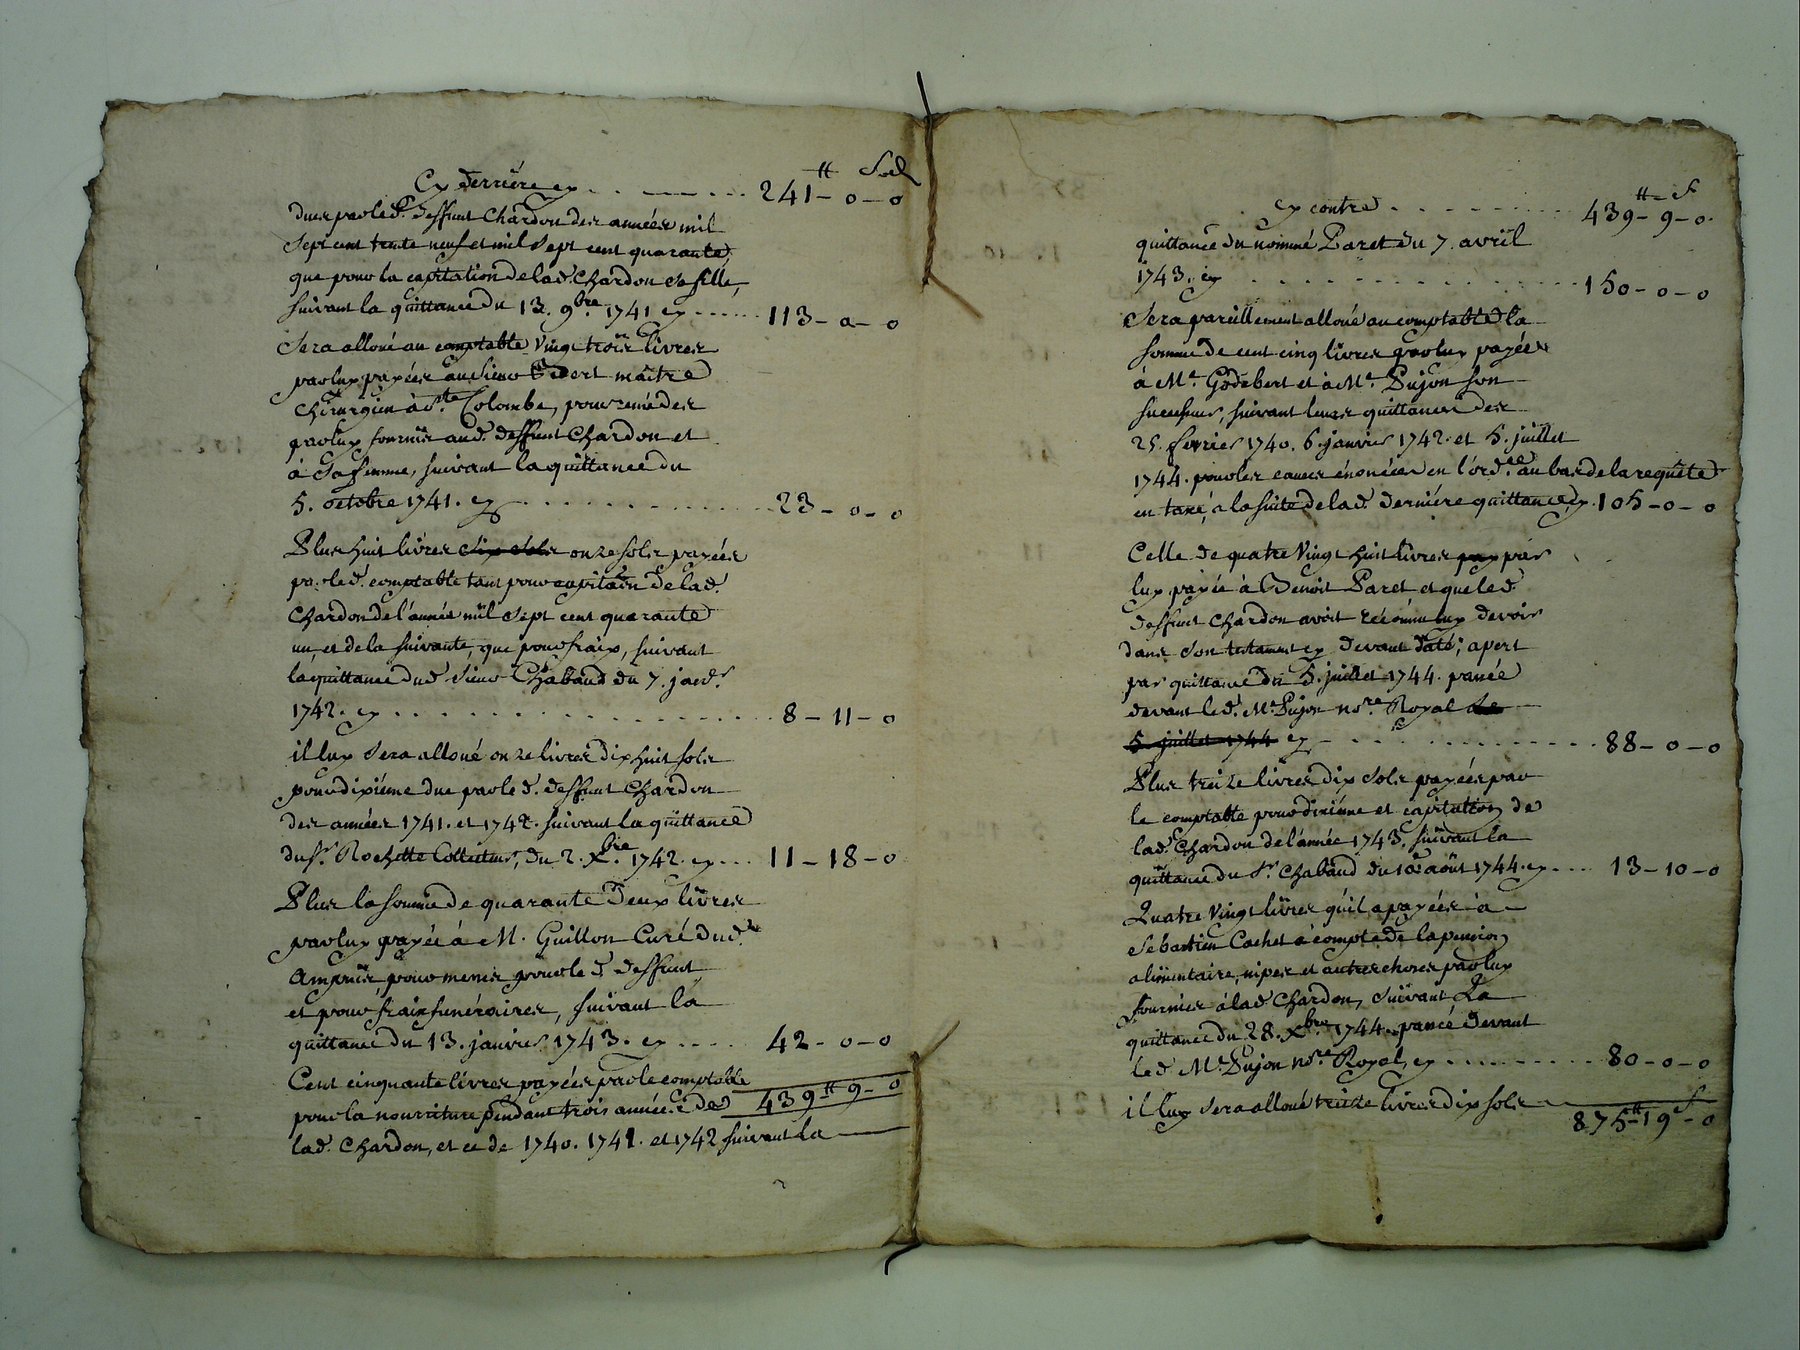 Cy derriére cy . . . . . . 241 tt – 0 – 0
dues par led. deffunt Chardon des années mil
Sept cent trente neuf et mil Sept cent quarante,
que pour la capitation de lad. Chardon Sa fille,
suivant la quittance du 13. 9bre. 1741 cy . . . . . 113 – 0 – 0
Sera alloué au comptable Vingt trois livres
par luy payées au Sieur maître
Chirurgien à Ste Colombe, pour remédes
par luy fournis aud. deffunt Chardon et
à Sa femme, suivant la quittance du
5. octobre 1741. cy . . . . . . . . 23 – 0 – 0
Plus huit livres Six Sols onze sols payées
par led. comptable tant pour capitaôn de lad.
Chardon de l'année mil Sept cent quarante
un, et de la suivante, que pour fraix, suivant
la quittance dud. Sieur Chabaud du 7. janv.r
1742. cy . . . . . . . . . . 8 – 11 – 0
il luy Sera alloué onze livres dix huit sols
pour dixiéme due par led. deffunt Chardon
des années 1741. et 1742. suivant la quittance
du Sr. Rochette Collecteur, du 2. Xbre. 1742. cy . . . 11 – 18 – 0
Plus la somme de quarante Deux livres
par luy payée à M. Guillon Curé dud.
Ampuis, pour messes pour le d. deffunt
et pour fraix funéraires, suivant la
quittance du 13. janvier 1743. cy . . . . 42 – 0 – 0
Cent cinquante livres payées par le comptable
pour la nourriture pendant trois années de 439 tt 9 – 0
lad. Chardon, et ce de 1740. 1741. et 1742 suivant la
cy contre . . . . . . . . 439 tt – 9 s – 0.
quittance du nommé Paret du 7. avril
1743. cy . . . . . . . . . . 150 – 0 – 0
Sera pareillement alloué au comptable la
somme de cent cinq livres par luy payées
à Me. Godebert et à Me. Pujon son
successeur, suivant leurs quittances des
25. fevrier 1740. 6. janvier 1742. et 5. juillet
1744. pour les causes énoncées en l'ord.ce au bas de la requête
en taxe, à la suite de lad. derniére quittance, cy. 105 – 0 – 0
Celle de quatre Vingt huit livres pay par
luy payée à Benoit Paret et que led.
deffunt Chardon avoit reconnu luy devoir
dans Son testament cy devant daté; apert
par quittance du 5. juillet 1744. passée
devant led. Me. Pujon nore. Royal Le
5. juillet 1744 cy . . . . . . . . 88 – 0 – 0
Plus treize livres dix Sols payées par
le comptable pour dixiéme et capitation de
lad. Chardon de l'année 1743. suivant la
quittance du Sr. Chabaud du août 1744. cy . . . . 13 – 10 – 0
Quatre Vingt livres qu'il a payées à
Sebastien Cachet à compte de la pension
alimentaire, nipes et autres choses par luy
fournies à lad. Chardon, Suivant La
quittance du 28. Xbre 1744. passée devant
led. Me. Pujon nore. Royal, cy . . . . . . . 80 – 0 – 0
il luy Sera alloué treize livres dix sols
875 tt – 19 s – 0